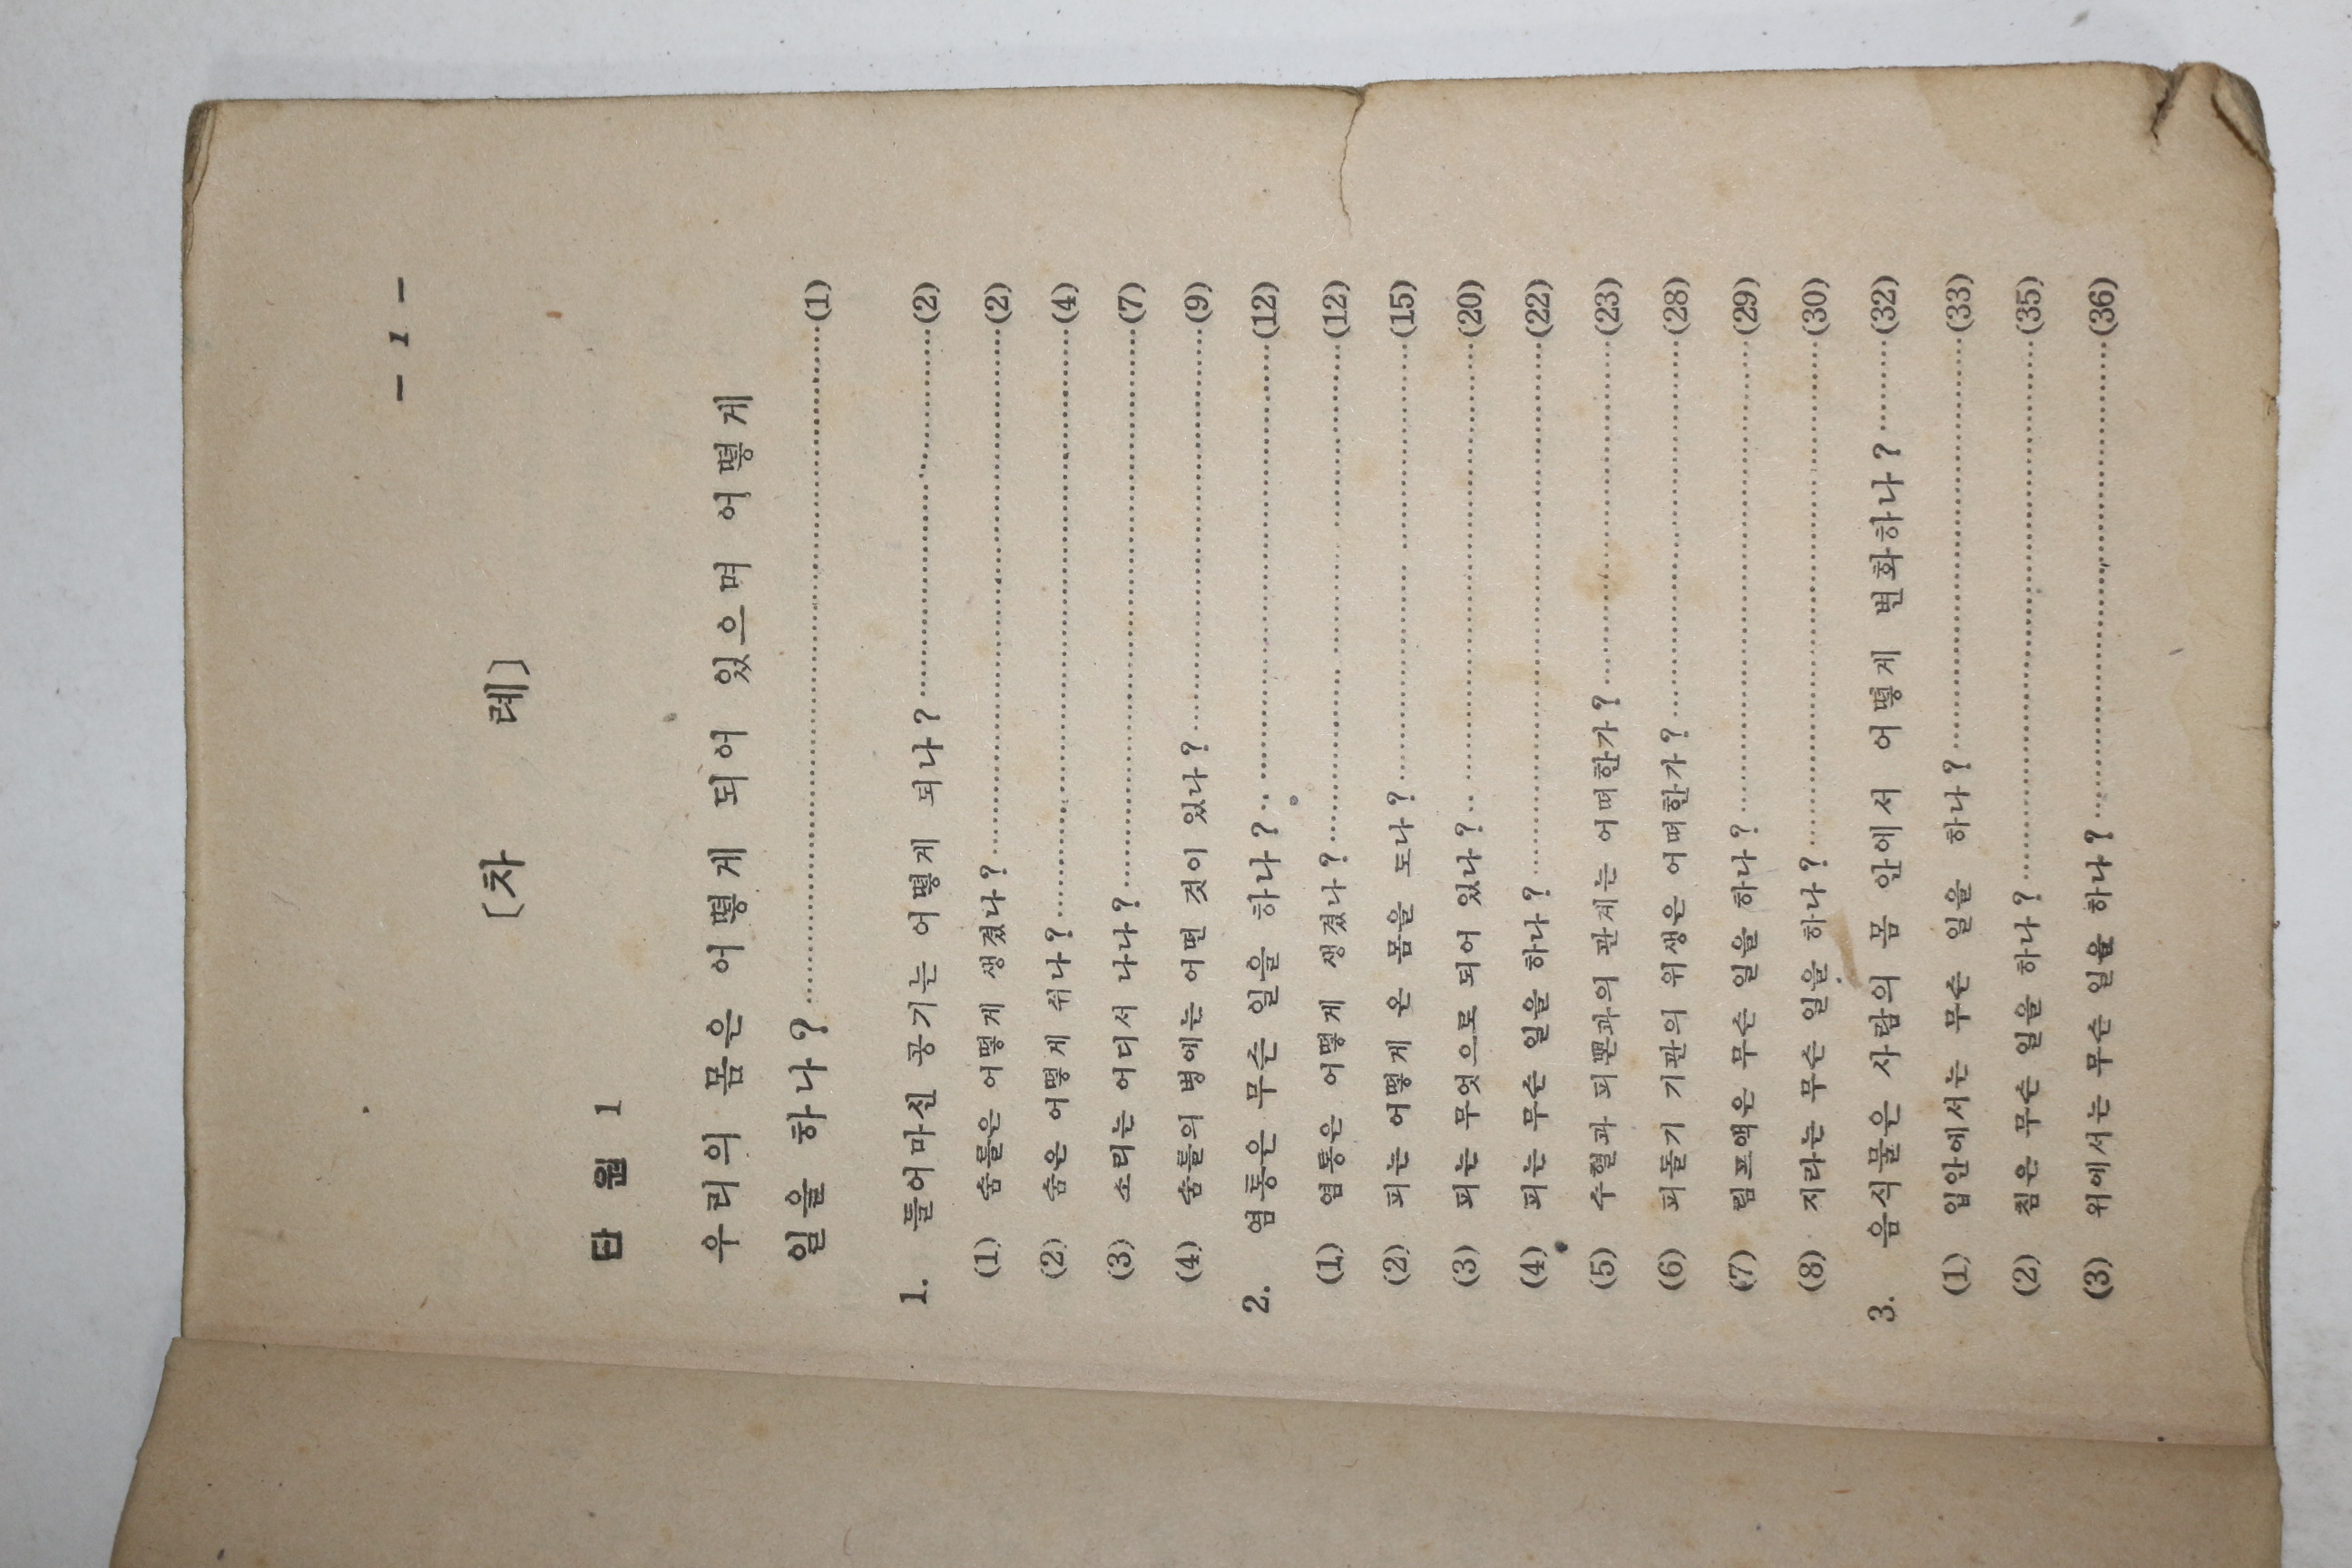 — 1 —
〔차 례〕
단 원 1
우리의 몸은 어떻게 되어 있으며 어떻게
일을 하나?……………………(1)
1. 들어마신 공기는 어떻게 되나?……………………(2)
(1) 숨틀은 어떻게 생겼나?……………………(2)
(2) 숨은 어떻게 쉬나?……………………(4)
(3) 소리는 어디서 나나?……………………(7)
(4) 숨틀의 병에는 어떤 것이 있나?……………………(9)
2. 염통은 무슨 일을 하나?……………………(12)
(1) 염통은 어떻게 생겼나?……………………(12)
(2) 피는 어떻게 온 몸을 도나?……………………(15)
(3) 피는 무엇으로 되어 있나?……………………(20)
(4) 피는 무슨 일을 하나?……………………(22)
(5) 수혈과 피뽄과의 관계는 어떠한가?……………………(23)
(6) 피돌기 기관의 위생은 어떠한가?……………………(28)
(7) 림프액은 무슨 일을 하나?……………………(29)
(8) 지라는 무슨 일을 하나?……………………(30)
3. 음식물은 사람의 몸 안에서 어떻게 변화하나?………(32)
(1) 입안에서는 무슨 일을 하나?……………………(33)
(2) 침은 무슨 일을 하나?……………………(35)
(3) 위에서는 무슨 일을 하나?……………………(36)